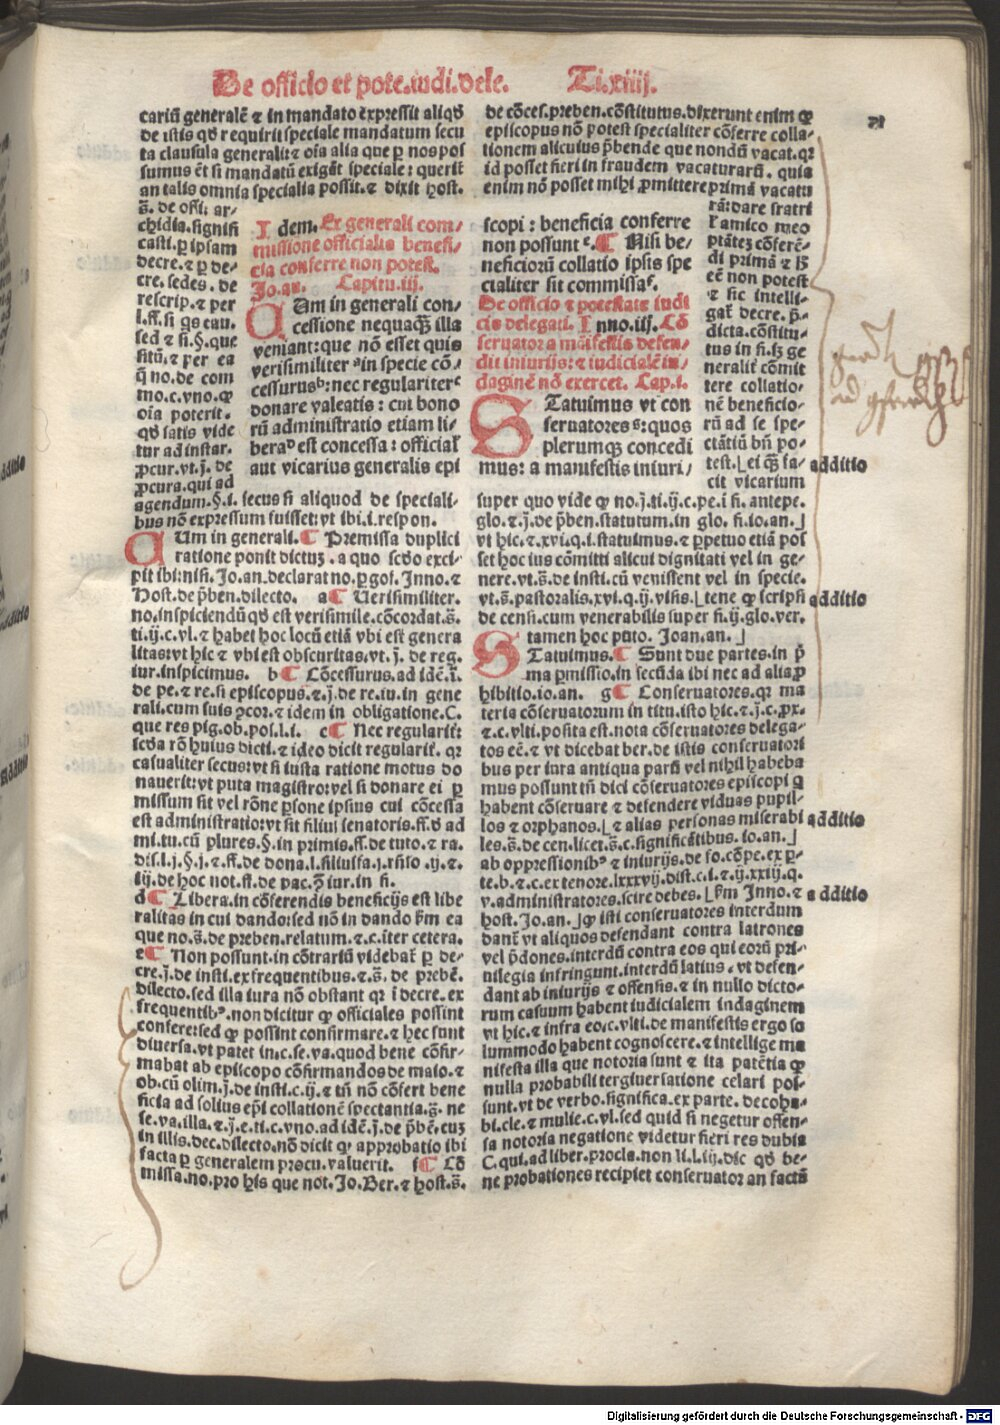 De officio et pote.iudi.dele. Ti.xiiij.
cariū generalē ⁊ in mandato expressit aliqđ
de istis qđ requirit speciale mandatum secu
ta clausula generali:⁊ oīa alia que ꝑ nos pos
sumus et̄ si mandatū exigāt speciale: querit̄
an talis omnia specialia possit.⁊ dixit host.
s̄. de offi. ar-
chidia.signifi
casti.ꝑ ipsam
decre.⁊ ꝑ de-
cre. sedes. de
rescrip.⁊ per
l.ff.si qs cau.
sed ⁊ si.§.que
situ.⁊ per ea
q̄ no.de com
mo.c.vno.ꝙ
oīa poterit.
qđ satis vide
tur ad instar.
ꝓcur.vt.j. de
ꝓcura.qui ad
agendum.§.i. secus si aliquod de speciali-
bus nō expressum fuisset:vt ibi.i.respon.
Idem. Ex generali com/
missione officialis benefi/
cia conferre non potest.
Jo.an. Capitu.iij.
CUm in generali con/
cessione nequaqȝ illa
veniant:que nō esset quis
verisimiliter in specie cō/
cessurus: nec regulariter
donare valeatis: cui bono
rū administratio etiam li/
bera est concessa: official̄
aut vicarius generalis epi
CUm in generali.¶ Premissa duplici
ratione ponit dictuȝ. a quo scđo exci-
pit ibi:nisi. Jo.an.declarat no.ꝑ gof. Inno.⁊
Host.de p̄ben.dilecto. a¶ Verisimiliter.
no.inspiciendū qđ est verisimile.cōcordat.s̄.
ti.ij.c.vl.⁊ habet hoc locū etiā vbi est genera
litas:vt hic ⁊ vbi est obscuritas.vt.j. de reg.
iur.inspicimus. b¶ Cōcessurus.ad idē.i.
de pe.⁊ re.si episcopus.⁊.j.de re.iu.in gene
rali.cum suis ꝯcor.⁊ idem in obligatione.C.
que res pig.ob.pos.l.i. c¶ Nec regularit̄:
scđa rō huius dicti.⁊ ideo dicit regularit̄. qr
casualiter secus:vt si iusta ratione motus do
nauerit:vt puta magistro:vel si donare ei ꝑ
missum sit vel rōne ꝑsone ipsius cui cōcessa
est administratio:vt sit filius senatoris.ff.đ ad
mi.tu.cū plures.§.in primis.ff.de tuto.⁊ ra.
dis.l.j.§.j.⁊ ff.de dona.l.filiusfa.j.rn̄so.ij.⁊
iij.de hoc not.ff.de pac.ꝯ iur.in fi.
d¶ Libera.in cōferendis beneficijs est libe
ralitas in cui dando:sed nō in dando fm ea
que no.s̄.de preben.relatum.⁊.c.iter cetera.
e¶ Non possunt.in cōtrariū videbat̄ ꝑ de-
cre.j.de insti.ex frequentibus.⁊.s̄. de prebē.
dilecto.sed illa iura nō obstant qr i decre.ex
frequentib⁹.non dicitur ꝙ officiales possint
conferre:sed ꝙ possint confirmare.⁊ hec sunt
diuersa.vt patet in.c.se.va.quod bene cōfir-
mabat ab episcopo cōfirmandos de maio.⁊
ob.cū olim.j.de insti.c.ij.⁊ tn̄ nō cōfert bene
ficia ad solius ep̄i collationē spectantia.s̄. ne
se.va.illa.⁊.j.e.ti.c.vno.ad idē.j. de p̄bē.cuȝ
in illis.dec.dilecto.nō dicit ꝙ approbatio ibi
facta ꝑ generalem procu.valuerit. f¶ Cō
missa.no.pro his que not.Jo.Ber.⁊ host.s̄.
de cōces.preben.cōstitutus.dixerunt enim ꝙ
episcopus nō potest specialiter cōferre colla-
tionem alicuius p̄bende que nondū vacat.qr
id posset fieri in fraudem vacaturarū. quia
enim nō posset mihi ꝓmittere primā vacatu
rā:dare fratri
l̄ amico meo
ptātēȝ cōferē-
di primā ⁊ ꝑ h̄
eē non potest
⁊ sic intelli-
gat̄ decre. p̄-
dicta.cōstitu-
tus in fi.lȝ ge
neralit̄ cōmit
tere collatio-
nē beneficio-
rū ad se spe-
ctātiū bn̄ po-
test.⌊ei qȝ fa-
cit vicarium
scopi: beneficia conferre
non possunt.¶ Nisi be/
neficiorū collatio ipsis spe
cialiter sit commissa.
De officio ⁊ potestate iudi
cis delegati. Inno.iiij. Cō
seruator a māifestis defen/
dit iniurijs: ⁊ iudicialē in/
daginē nō exercet. Cap.i.
STatuimus vt con
seruatores: quos
plerumqȝ concedi
mus: a manifestis iniuri/
super quo vide ꝙ no.j.ti.ij.c.pe.i fi. antepe.
glo.⁊.j.de p̄ben.statutum.in glo. fi.io.an.⌋
vt hic.⁊.xvi.q.i.statuimus.⁊ ꝑpetuo etiā pos
set hoc ius cōmitti alicui dignitati vel in ge-
nere.vt.s̄.de insti.cū venissent vel in specie.
vt.s̄.pastoralis.xvi.q.ij.visis.⌊tene ꝙ scripsi
de censi.cum venerabilis super fi.ij.glo.ver.
tamen hoc puto. Joan.an.⌋
STatuimus.¶ Sunt due partes.in p̄
ma ꝑmissio.in secūda ibi nec ad alia.ꝓ
hibitio.io.an. g¶ Conseruatores.qr ma
teria cōseruatorum in titu.isto hic.⁊.j.c.ꝓx.
⁊.c.vlti.posita est.nota cōseruatores delega-
tos eē.⁊ vt dicebat ber.de istis conseruatori
bus per iura antiqua parū vel nihil habeba
mus possunt tn̄ dici cōseruatores episcopi q̄
habent cōseruare ⁊ defendere viduas pupil-
los ⁊ orphanos.⌊⁊ alias personas miserabi
les.s̄.de cen.licet.s̄.c.significātibus.io.an.⌋
ab oppressionib⁹ ⁊ iniurijs.de fo.cōpe.ex ꝑ-
te.b.⁊.c.ex tenore.lxxxvij.dist.c.i.⁊.ij.xxiij.q.
v.administratores.scire debes.⌊fm Inno.⁊
host. Jo.an.⌋ꝙ isti conseruatores interdum
dant̄ vt aliquos defendant contra latrones
vel p̄dones.interdū contra eos qui eorū pri-
uilegia infringunt.interdū latius. vt defen-
dant ab iniurijs ⁊ offensis.⁊ in nullo dicto-
rum casuum habent iudicialem indaginem
vt hic.⁊ infra eo.c.vlti.de manifestis ergo so
lummodo habent cognoscere.⁊ intellige ma
nifesta illa que notoria sunt ⁊ ita patētia ꝙ
nulla probabili tergiuersatione celari pos-
sunt.vt de verbo.significa.ex parte. de coha-
bi.cle.⁊ mulie.c.vl.sed quid si negetur offen-
sa notoria negatione videtur fieri res dubia
C.qui.ad liber.procla.non li.l.iij.dic qđ be-
ne probationes recipiet conseruator an factū
additio
additio
additio
additio
Digitalisierung gefördert durch die Deutsche Forschungsgemeinschaft - DFG